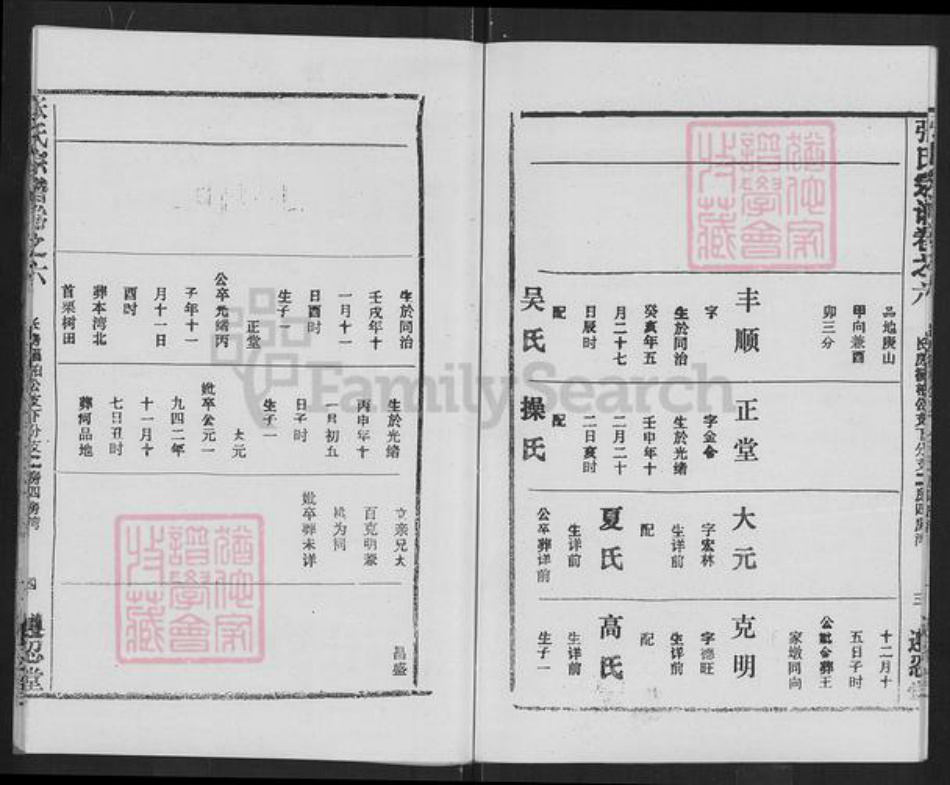 张氏宗谱卷之六
三
品地庚山
甲向兼酉
卯三分
丰顺
字
生於同治
癸亥年五
月二十七
日辰时
配
吴氏
正堂
字金令
生於光绪
壬申年十
二月二十
二日亥时
配
操氏
大元
字宏林
生详前
配
夏氏
生详前
公卒葬详前
十二月十
五日子时
公妣合葬王
家墩同向
克明
字德旺
生详前
配
高氏
生详前
生子一
生於同治
壬戌年十
一月十一
日酉时
生子一
正堂
公卒光绪丙
子年十一
月十一日
酉时
葬本湾北
首栗树田
生於光绪
丙申年十
一月初五
日子时
生子一
大元
妣卒公元一
九四二年
十一月十
七日丑时
葬何品地
立亲兄大
百克明兼
祧为嗣
妣卒葬未详
昌盛
张氏宗谱卷之六
四
FamilySearch